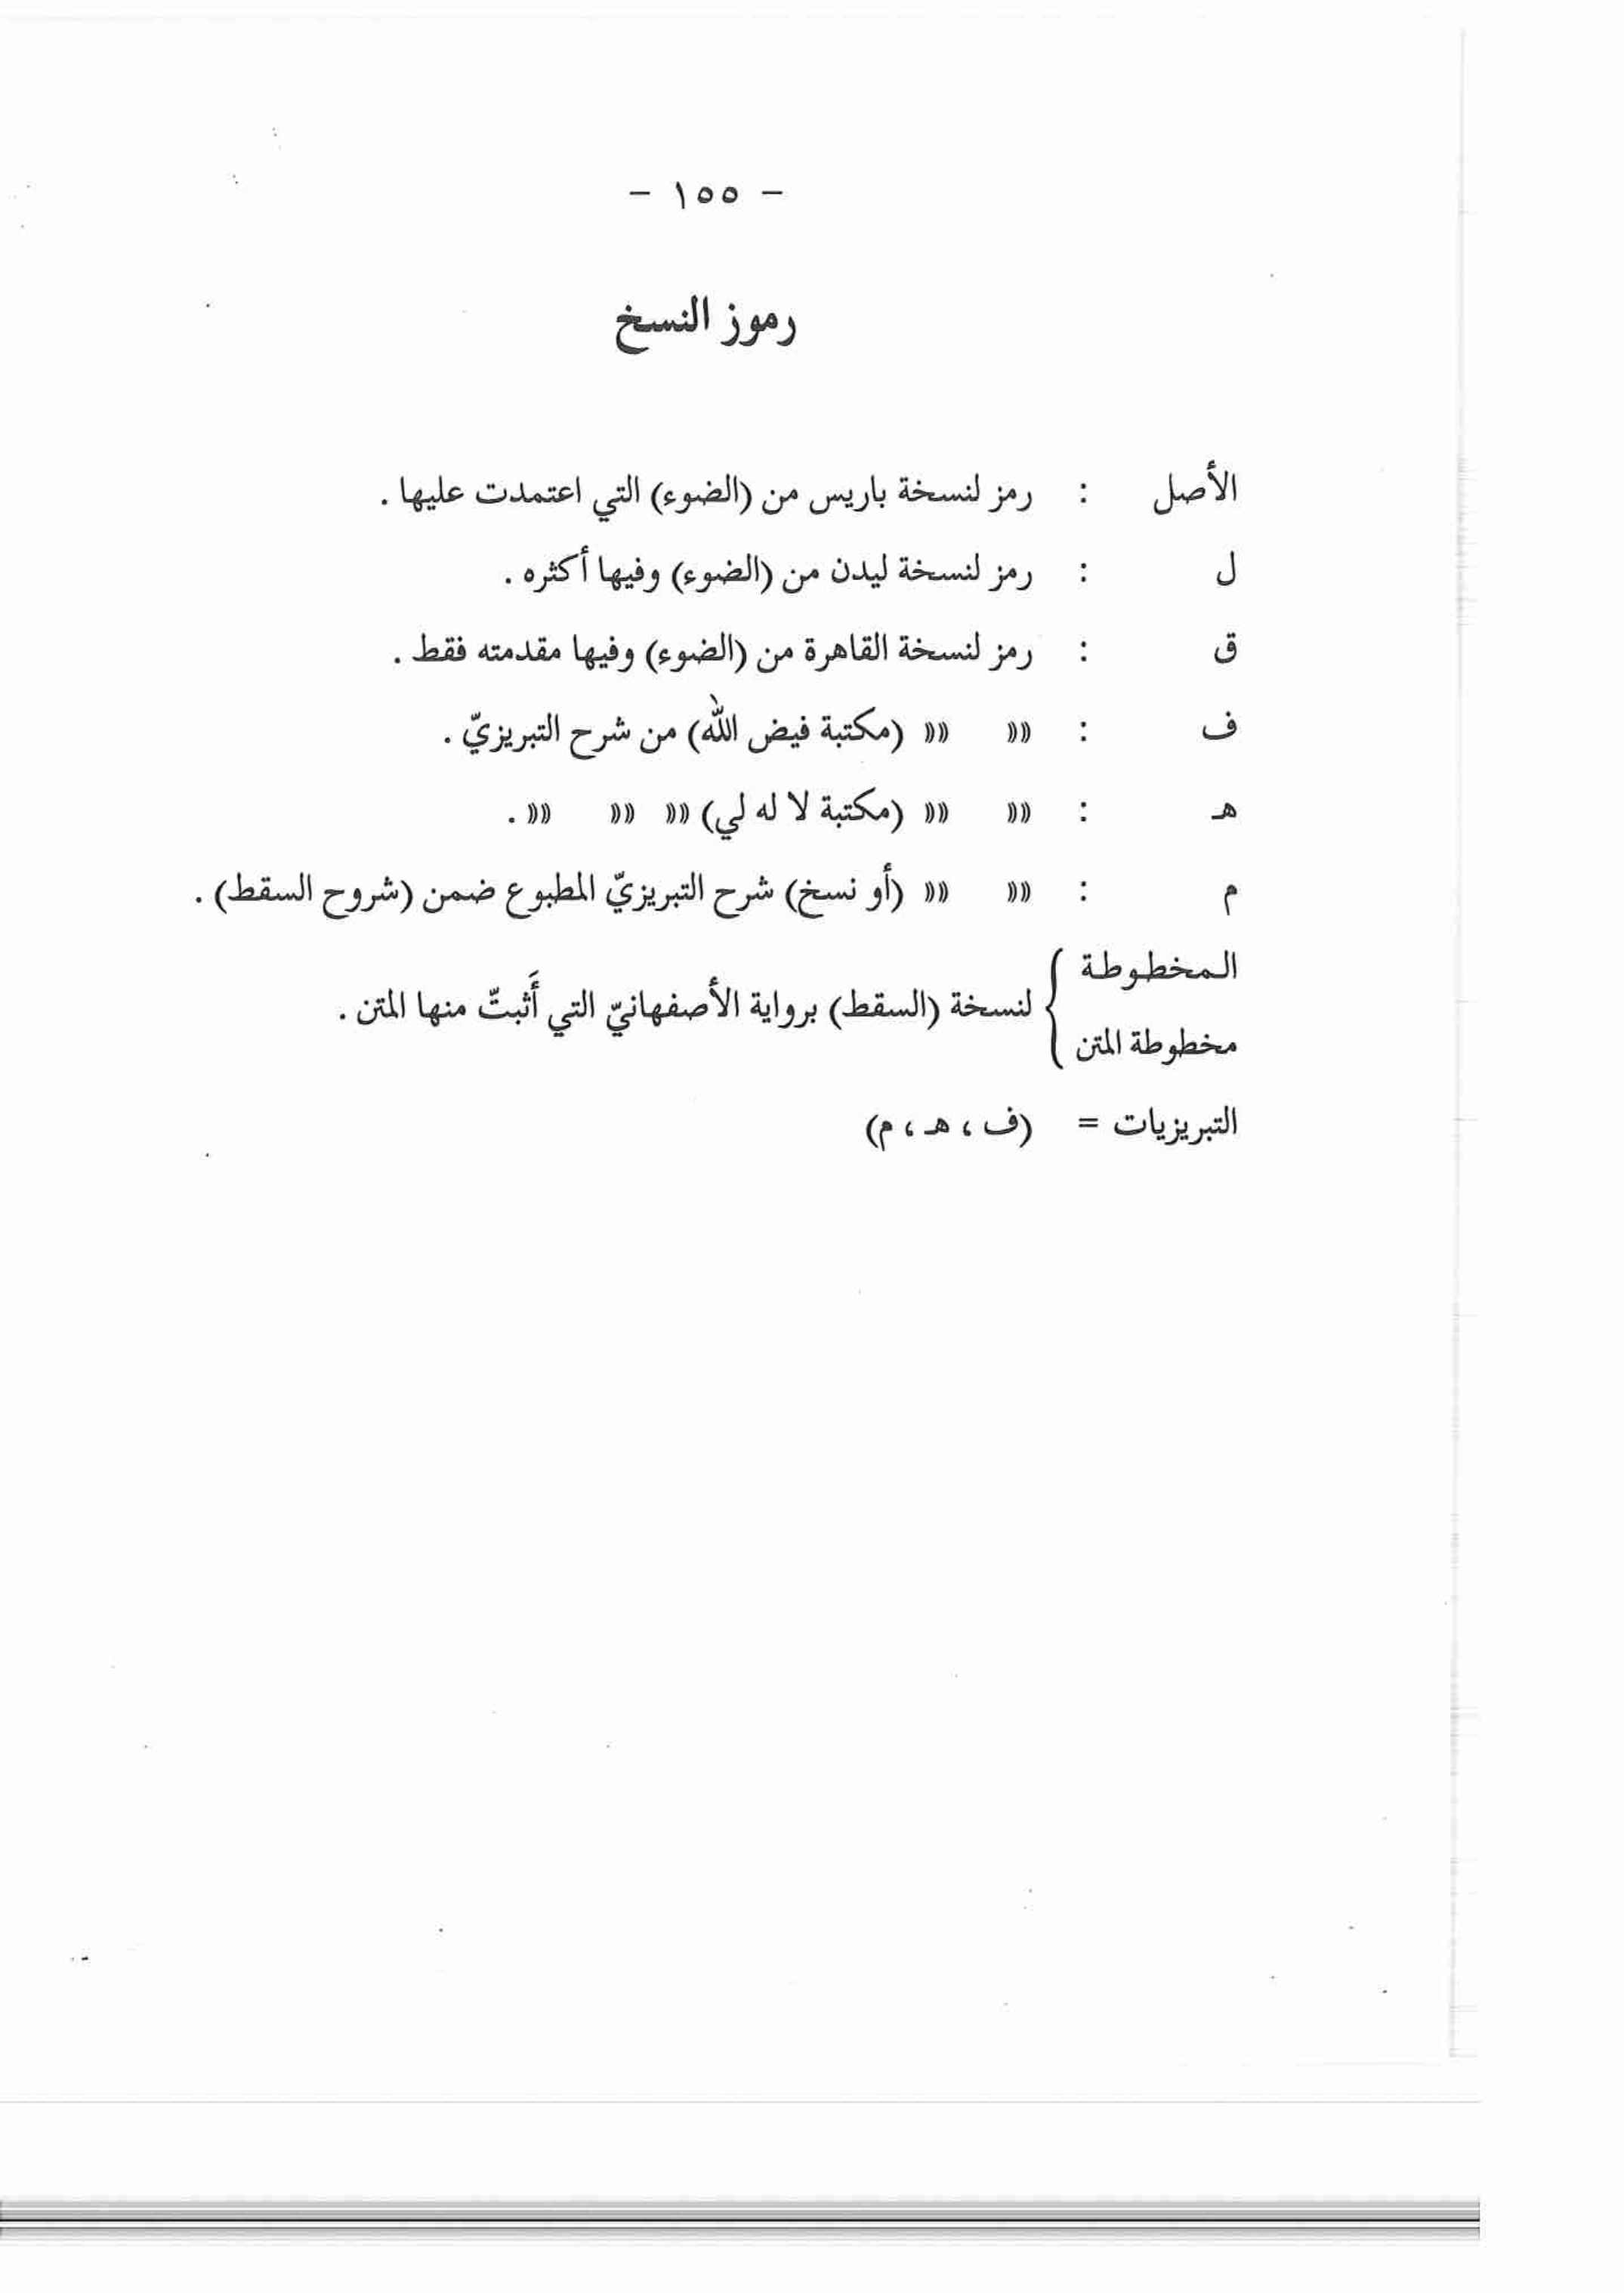 - ١٥٥ -
رموز النسخ
الأصل : رمز لنسخة باريس من (الضوء) التي اعتمدت عليها .
ل : رمز لنسخة ليدن من (الضوء) وفيها أكثره .
ق : رمز لنسخة القاهرة من (الضوء) وفيها مقدمته فقط .
ف : » » (مكتبة فيض الله) من شرح التبريزيّ .
هـ : » » (مكتبة لا له لي) » » » .
م : » » (أو نسخ) شرح التبريزيّ المطبوع ضمن (شروح السقط) .
المخطوطة
لنسخة (السقط) برواية الأصفهانيّ التي أَثبتّ منها المتن .
مخطوطة المتن
التبريزيات = (ف ، هـ ، م)